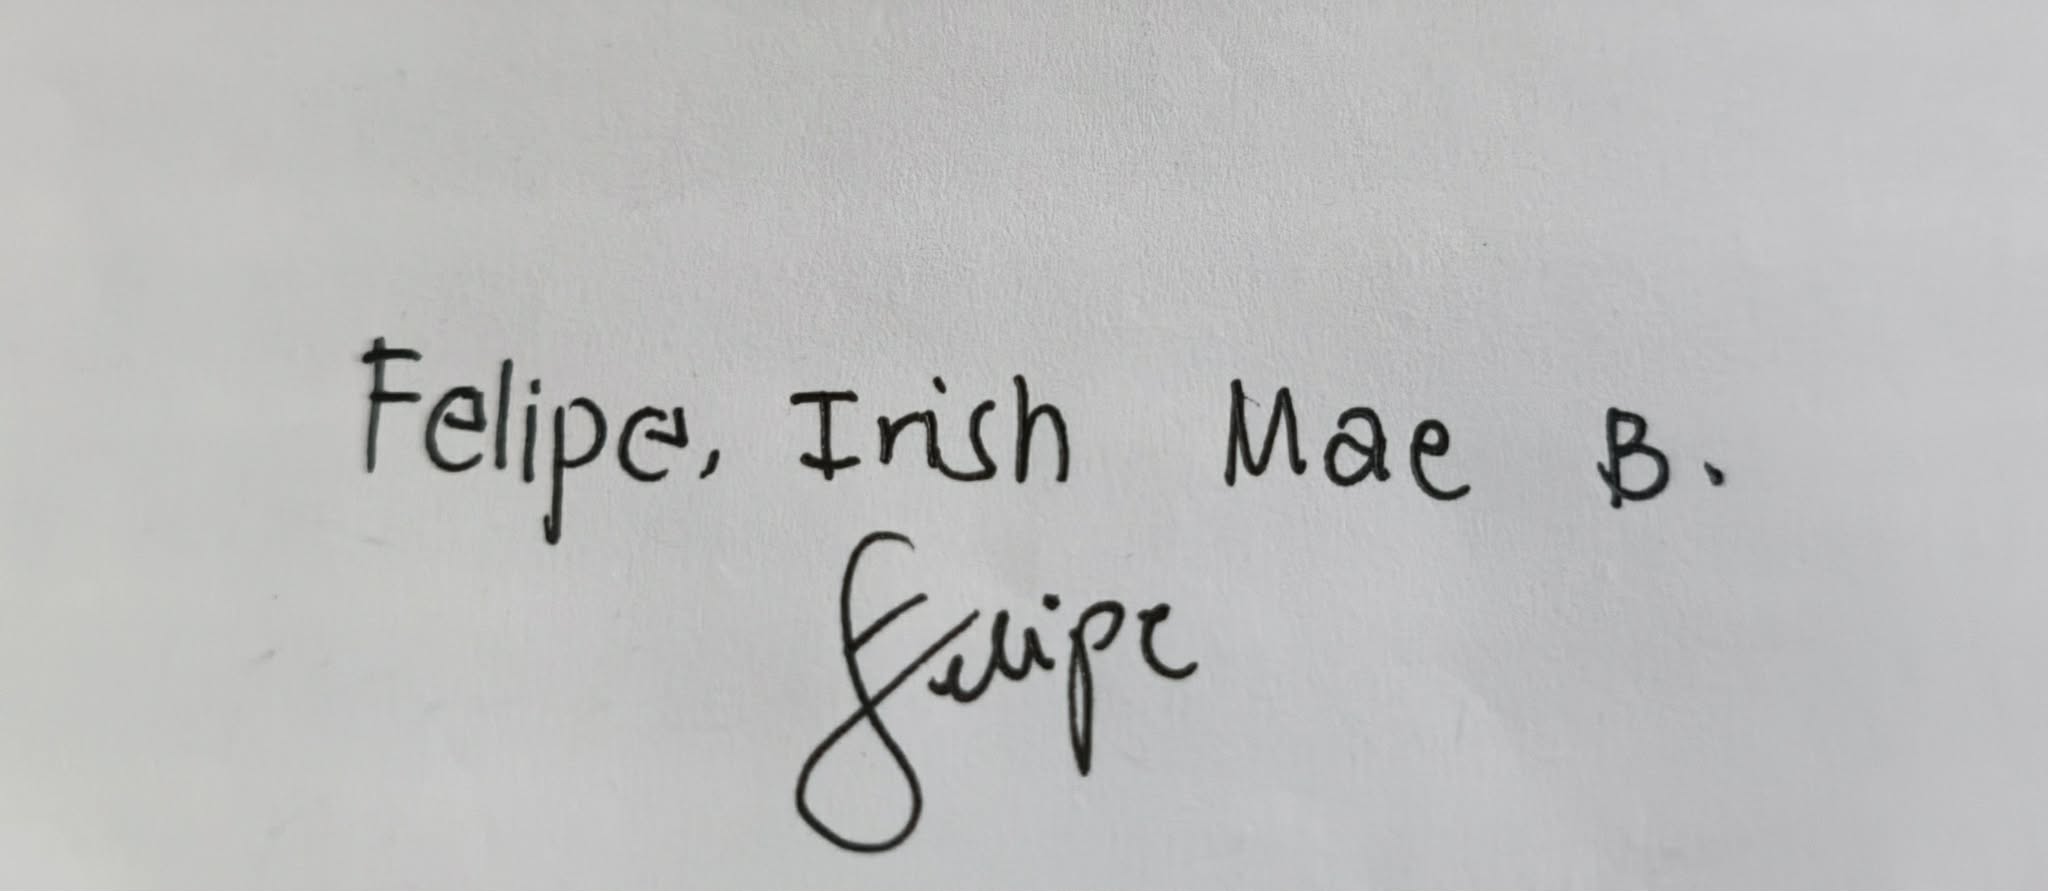 Felipe, Irish Mae B.
Felipe